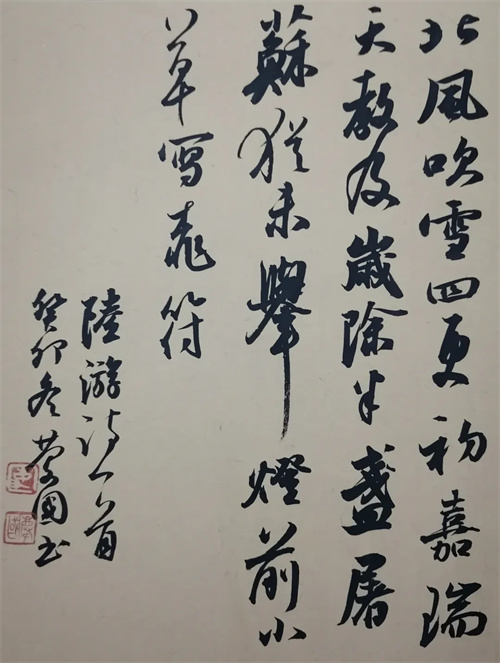 北風吹雪四更初嘉瑞
天教及歲除半盞屠
蘇猶未舉燈前小
草寫桃符
陸游詩一首
癸卯冬 國书